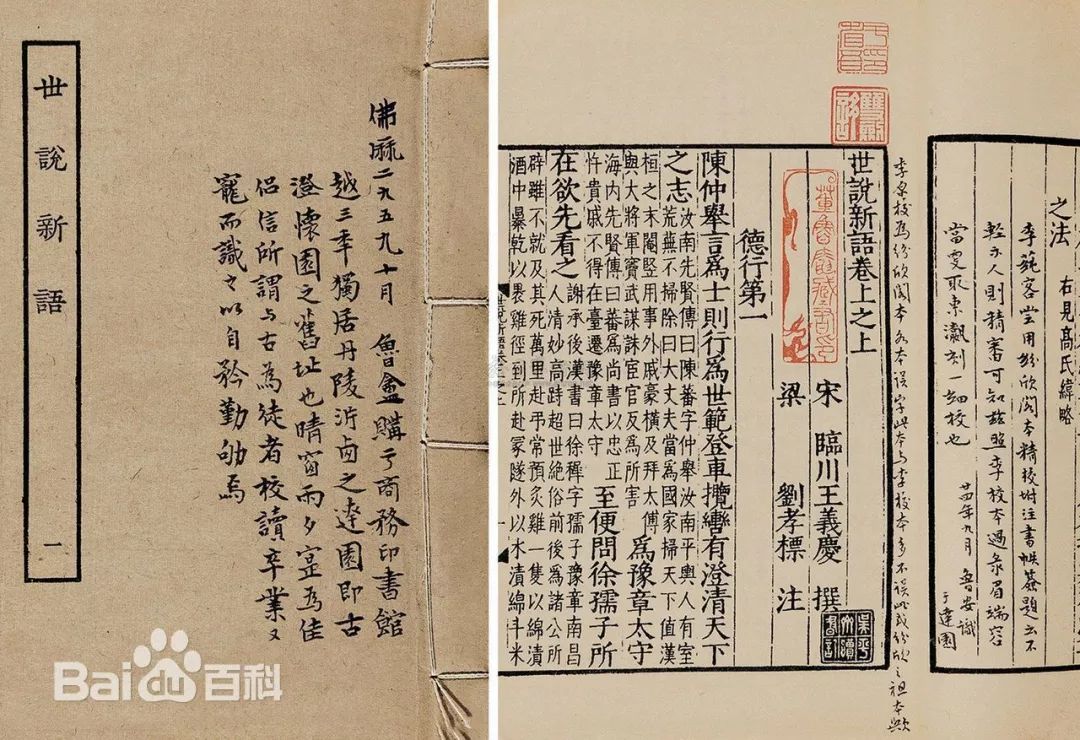 世說新語
一
佛曆二九五九十月 魯盦購于商務印書館
越三年獨居丹陵沜卣之達園即古
澄懷園之舊址也晴窗雨夕寔爲佳
侶信所謂与古為徒者校讀卒業又
寵而識之以自矜勤劬焉
Bai 百科
之法 右見髙氏緯略
李蒓客嘗用紛欣閣本精校坿注書帙
輕示人則精審可知茲照李校本過彔眉端容
當更取東瀛刻一細校也
廿四年九月 魯安識
于達園
李枲校爲紛欣閣本 各本誤字此本与李校本多不誤此或紛欣之祖本歟
世說新語卷上之上
宋 臨川王義慶 撰
梁 劉孝標 注
董魯盦藏書印
德行第一
陳仲舉言爲士則行爲世範登車攬轡有澄清天下
之志汝南先賢傳曰陳蕃字仲舉汝南平輿人有室
荒蕪不掃除曰大丈夫當爲國家掃天下值漢
桓之末閹豎用事外戚豪橫及拜太傅
與大將軍竇武謀誅宦官反爲所害 爲豫章太守
海内先賢傳曰蕃爲尚書以忠正
忤貴戚不得在臺遷豫章太守 至便問徐孺子所
在欲先看之謝承後漢書曰徐穉字孺子豫章南昌
人清妙高跱超世絕俗前後爲諸公所
辟雖不就及其死萬里赴弔常預炙雞一隻以綿漬
酒中暴乾以裹雞徑到所赴冢隧外以水漬綿斗米